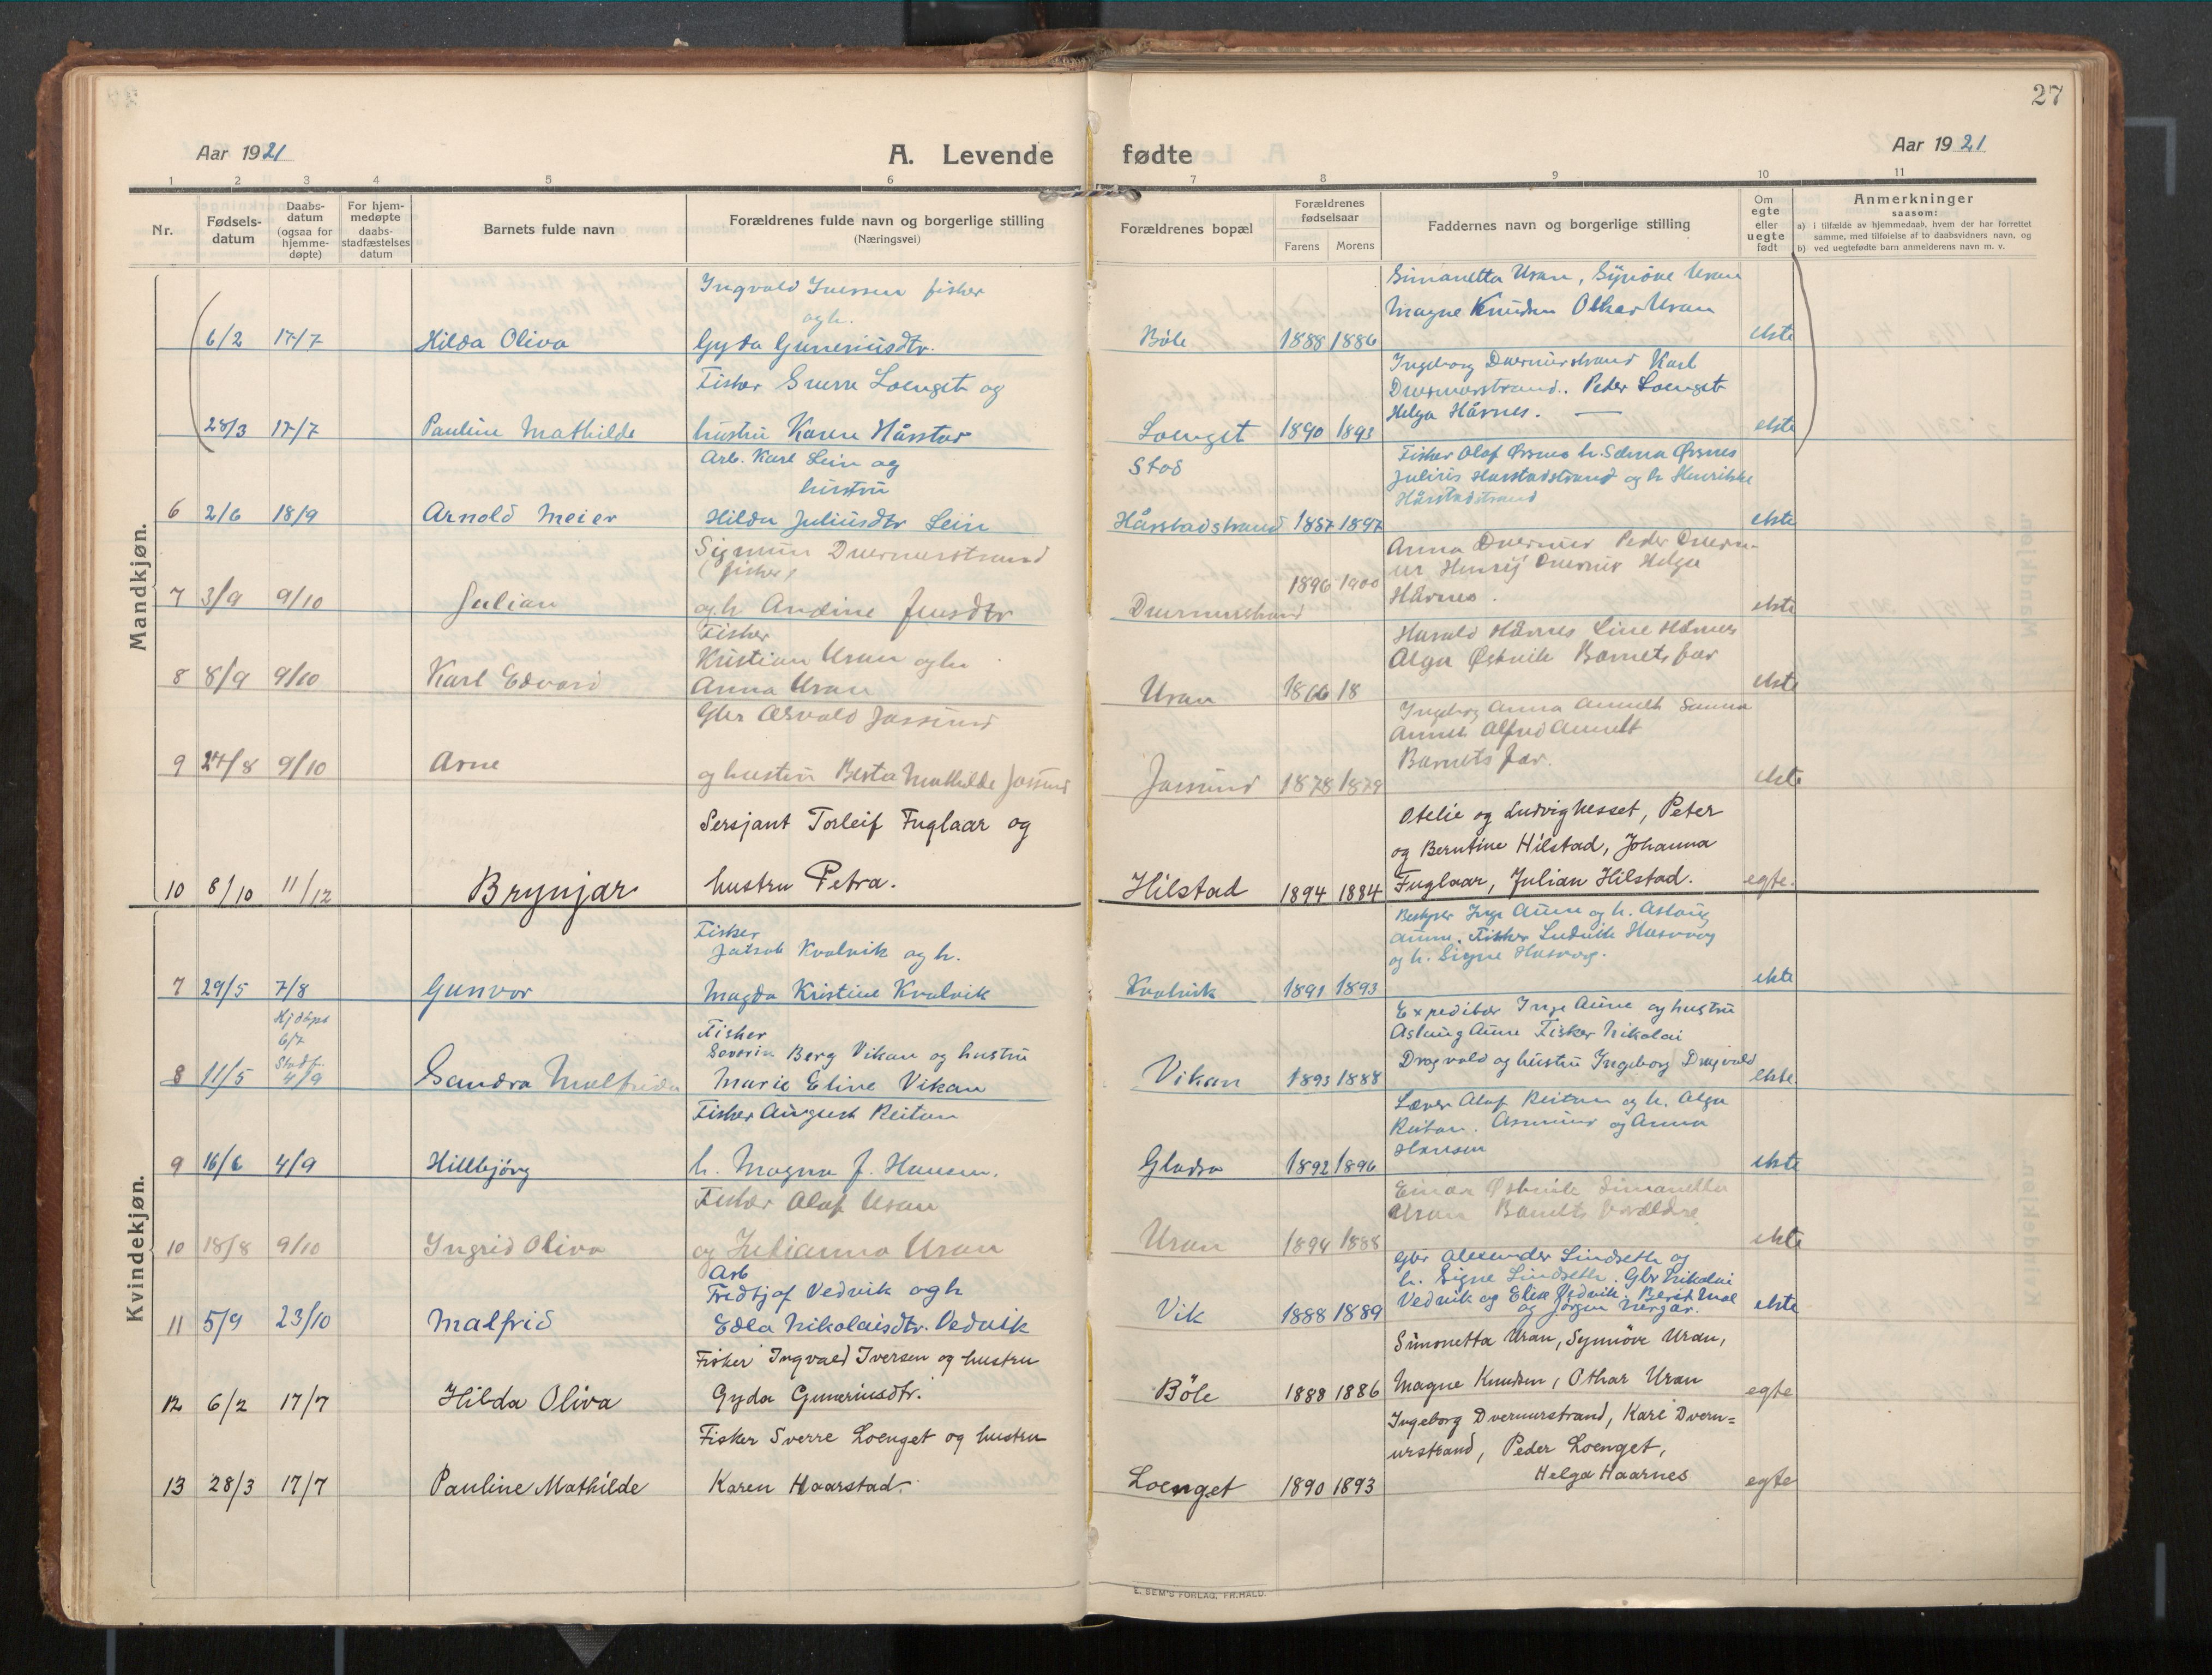 27
Aar 1921
A. Levende fødte
Aar 1921
1 2 3 4 5 6 7 8 9 10 11
Nr.
Fødsels-
datum
Daabs-
datum
(ogsaa for
hjemme-
døpte)
For hjem-
medøpte
daabs-
stadfæstelses
datum
Barnets fulde navn
Forældrenes fulde navn og borgerlige stilling
(Næringsvei)
Forældrenes bopæl
Forældrenes
fødselsaar
Farens Morens
Faddernes navn og borgerlige stilling
Om
egte
eller
uegte
født
Anmerkninger
saasom:
a) i tilfælde av hjemmedaab, hvem der har forrettet
samme, med tilføielse af to daabsvidners navn, og
b) ved uegtefødte barn anmelderens navn m. v.
Mandkjøn.
Ingvald Iversen fisher
og h.
6/2 17/7 Hilda Oliva Gyda Guneriusdtr.
Böle 1888 1886
Simanetta Uran, Synöve Uran
Magne Knudsen Othar Uran
ekte
Fisker Sverre Loenget og
28/3 17/7 Pauline Mathilde hustru Karen Hårstad
Loenget 1890 1893
Ingeborg Dvernurstrand Karl
Dvernurstrand.. Peder Loenget
Helga Hårnes.
ekte
Arb. Karl Lein og
hustru
6 2/6 18/9 Arnold Meier Hilda Juliusdtr Lein
Stod
Hårstadstrand 1887 1897
Fisker Olaf Ørsnes h. Selma Ørsnes
Julius Harstadstrand og h Henrikke
Hårstadstrand
ekte
Sigmun Dvernurstrand
(fisher)
7 3/9 9/10 Julian og h Andine Jensdtr
Dvernurstrand 1896 1900
Anna Dvernur Peder Dvern-
ur Henrij Dvernur Helga
Hårnes.
ekte
Fisker
Kristian Uran og h
8 8/9 9/10 Karl Edvard Anna Uran
Uran 1866 18
Harald Hårnes Line Hårnes
Alga Østvik Barnets far
ekte
Gbr Osvald Jøssund
9 27/8 9/10 Arne og hustru Berta Mathilde Jøssund
Jøssund 1878 1879
Ingeborg Anna Annelt Sanna
Annelt Alfred Annelt
Barnets far.
ekte
Sersjant Torleif Fuglaar og
10 8/10 11/12 Brynjar hustru Petra.
Hilstad 1894 1884
Otelie og Ludvig Nesset, Peter
og Berntine Hilstad, Johanna
Fuglaar, Julian Hilstad.
egte.
Kvindekjøn.
Fisker
Jakob Kvalvik og h.
7 29/5 7/8 Gunvor Magda Kristine Kvalvik
Kvalvik 1891 1893
Bestyrer Inge Aune og h. Aslaug
Aune. Fisker Ludvik Husvag
og h. Signe Husvag.
ekte
Hjdöpt
6/7
Stadf.
Fisker
Severin Berg Vikan og hustru
8 11/5 4/9 Sandra Malfrida Marie Eline Vikan
Vikan 1893 1888
Expeditør Inge Aune og hustru
Aslaug Aune Fisker Nikolai
Dragvold og hustru Ingeborg Dragvold
ekte.
Fisker August Reitan
9 16/6 4/9 Hillbjörg h. Magna J. Hansen.
Gladsø 1892 1896
Lærer Olaf Reitan og h. Alga
Reitan. Asmund og Anna
Hansen
ekte
Fisker Olaf Uran
10 18/8 9/10 Ingrid Oliva og Julianna Uran
Uran 1894 1888
Einar Østvik Simanetta
Uran Barnets forældre
ekte
Arb
Fredtjof Vedvik og h
11 5/9 23/10 Malfrid Edla Nikolaisdtr. Vedvik
Vik 1888 1889
Gbr Alexander Lindseth og
h. Signe Lindseth. Gbr Nikolai
Vedvik og Elise Vedvik. Berit Moe
og Jörgen Nergår.
ekte
Fisker Ingvald Iversen og hustru
12 6/2 17/7 Hilda Oliva Gyda Gunariusdtr.
Böle 1888 1886
Simonetta Uran, Synnöve Uran,
Magne Knudsen, Othar Uran
egte
Fisker Sverre Loenget og hustru
13 28/3 17/7 Pauline Mathilde Karen Haarstad.
Loenget 1890 1893
Ingeborg Dvernurstrand, Karl Dvern=
urstrand, Peder Loenget,
Helga Haarnes
egte
E. SEM'S FORLAG, FR.HALD.